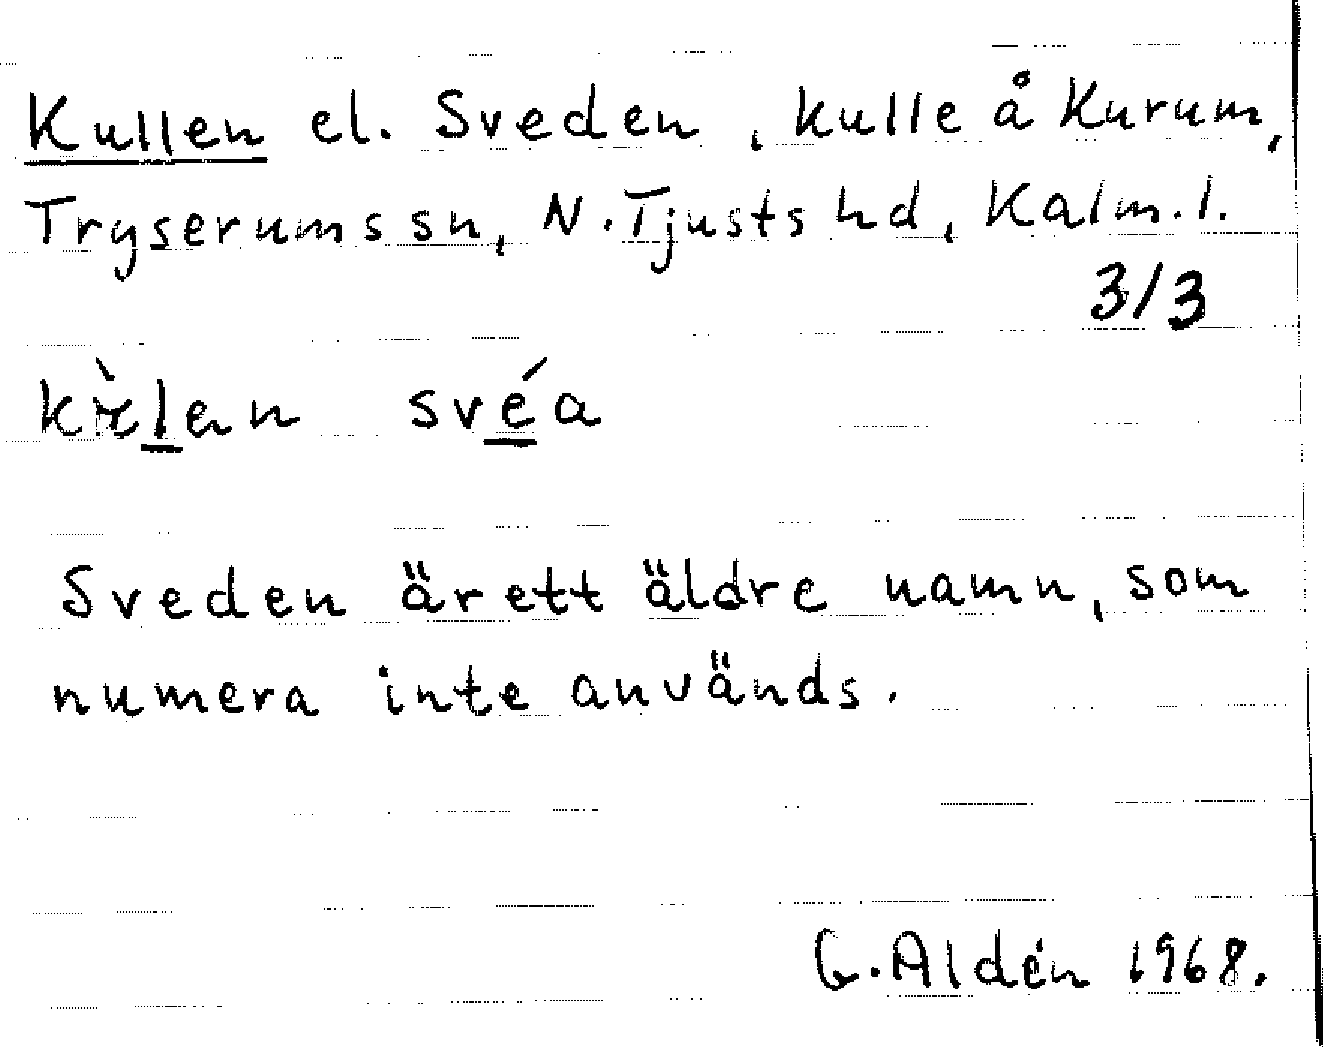 Kullen el. Sveden, kulle å Kurum,
Tryserums sn, N. Tjusts hd, Kalm. l.
3/3
svéa
Sveden är ett äldre namn, som
numera inte används.
G. Aldén 1968.